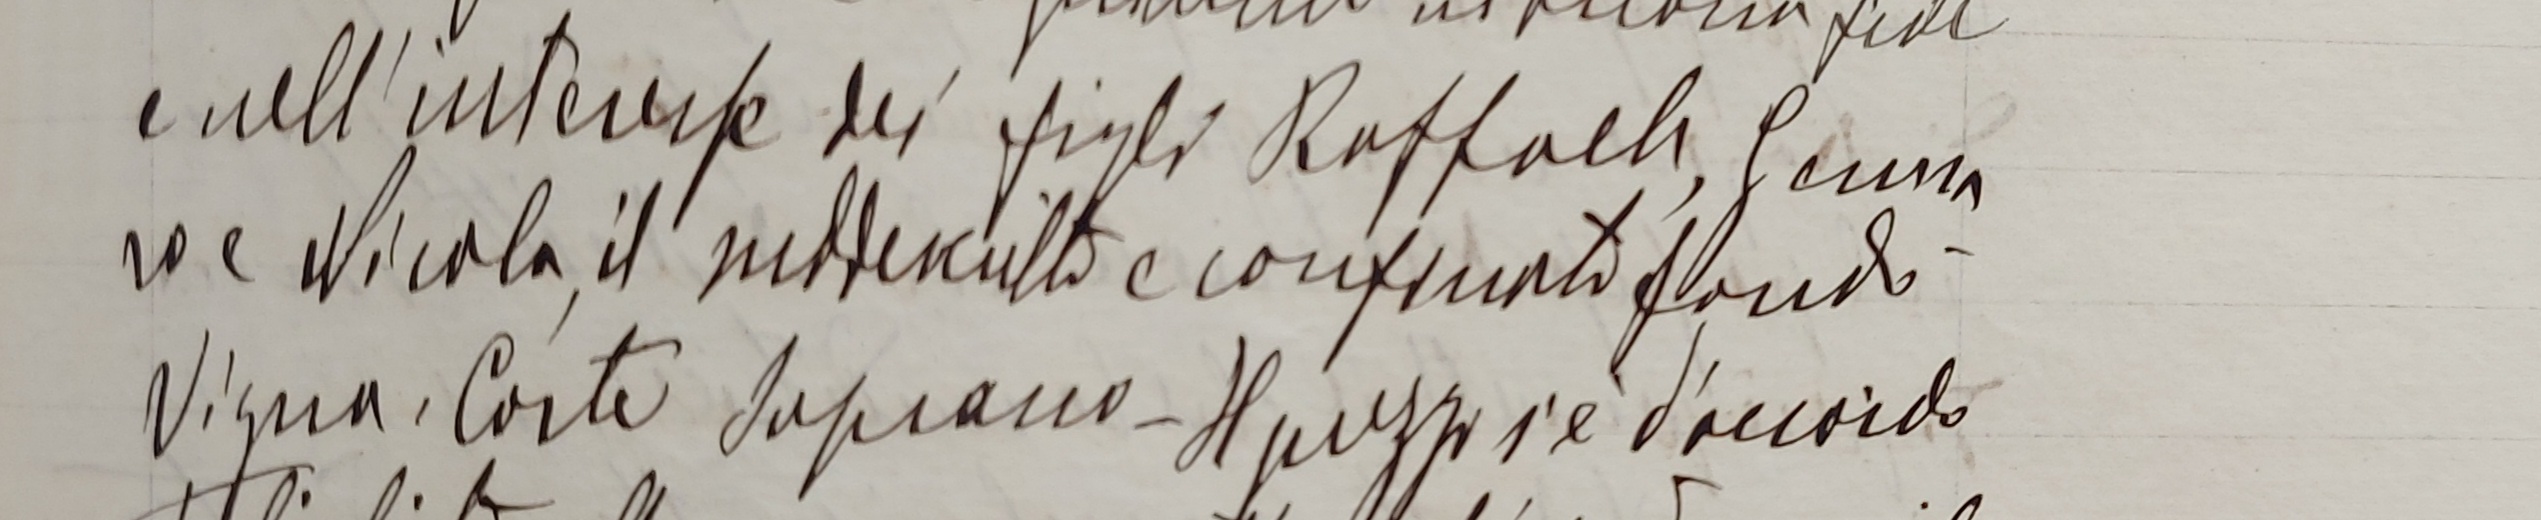 e nell'interesse dei figli Raffaele, Genna
ro e Nicola, il suddescritto e confinato fondo-
Vigna, Corte Soprano - Il prezzo s'è d'accordo